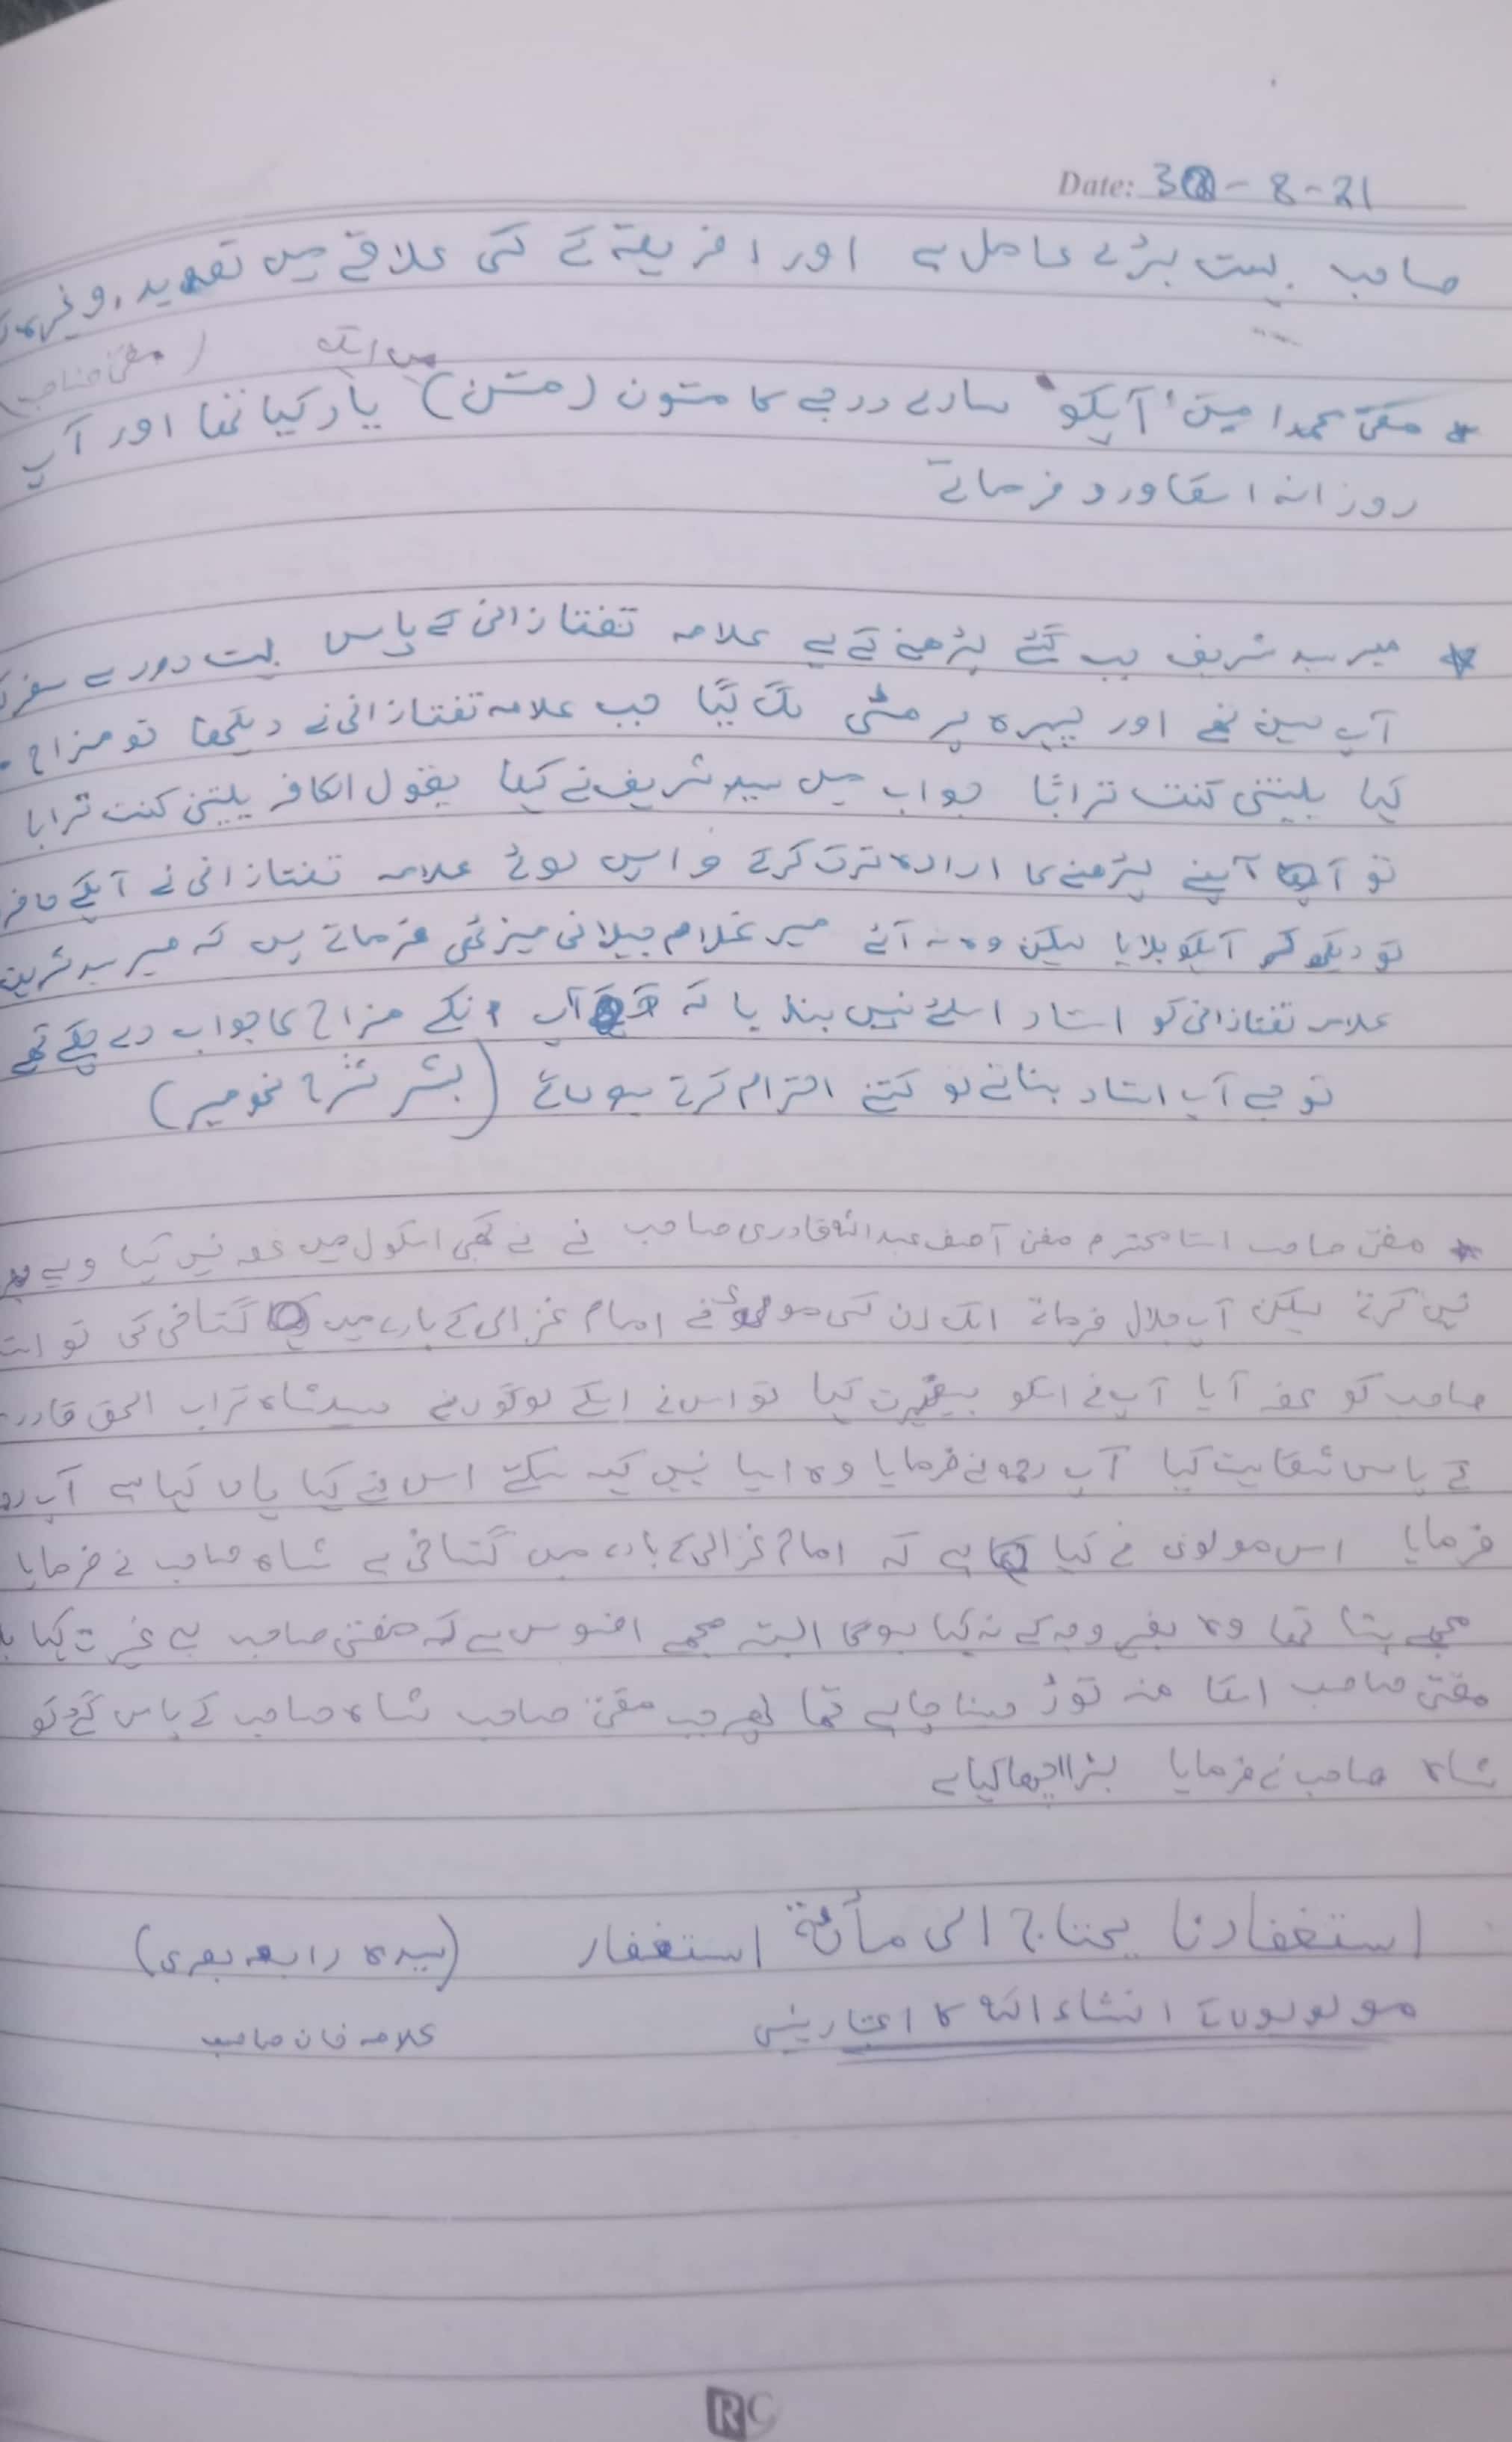 Date: 30-8-21
صاحب بہت بڑے عامل ہے اور افریقہ کے کئی علاقے میں
(مفتی صاحب)
* مفتی محمد امین آپکو سارے درجے کا متون (متن) یاد کیا تھا اور آپ
روزانہ اسکا ورد فرماتے
* میر سید شریف جب گئے پڑھنے کے لیے علامہ تفتازانی کے پاس بہت دور سے سفر
آپ تھے اور چہرہ پر مٹی لگ گیا جب علامہ تفتازانی نے دیکھا تو مزاح
کہا یلیتنی کنت تراباً جواب میں سید شریف نے کہا یقول الکافر یلیتنی کنت ترابا
تو آپنے پڑھنے کا ارادہ ترک کرکے واپس ہوئے علامہ تفتازانی نے آپکے
تو دیکھ کر آپکو بلایا لیکن وہ نہ آئے میر غلام جیلانی میرٹھی فرماتے ہیں کہ میر سید شریف
علامہ تفتازانی کو استاد اسلئے نہیں بنایا کہ آپ انکے مزاح کا جواب دے چکے تھے
تو جسے آپ استاد بناتے تو کتنے احترام کرتے ہوں گے (بشیر شرح نحو میر)
* مفتی صاحب استا محترم مفتی آصف عبداللہ قادری صاحب نے کبھی اسکول میں نہیں کیا ویسے
نہیں کرتے لیکن آپ جلال فرماتے ایک دن کسی مولوی نے امام غزالی کے بارے میں گستاخی کی تو
صاحب کو غصہ آیا آپ نے اسکو بیغیرت کہا تو اس نے اسکے لوگوں نے سید شاہ تراب الحق قادری
کے پاس شکایت کیا آپ رحمہ نے فرمایا وہ ایسا نہیں کہہ سکتے اس نے کہا ہاں کہا ہے آپ
فرمایا اس مولوی نے کہا ہے کہ امام غزالی کے بارے میں گستاخی ہے شاہ صاحب نے فرمایا
مجھے پتا تھا وہ بغیر وجہ کے نہ کہا ہوگا البتہ مجھے افسوس ہے کہ مفتی صاحب بے غیرت کہا
مفتی صاحب اسکا منہ توڑ دینا چاہیے تھا پھر جب مفتی صاحب شاہ صاحب کے پاس گئے تو
شاہ صاحب نے فرمایا بڑا اچھا کیا ہے
استغفارنا یحتاج الی مأئة استغفار (سیدہ رابعہ بصری)
مولویوں کے انشاء اللہ کا اعتبار نہیں علامہ خان صاحب
RC